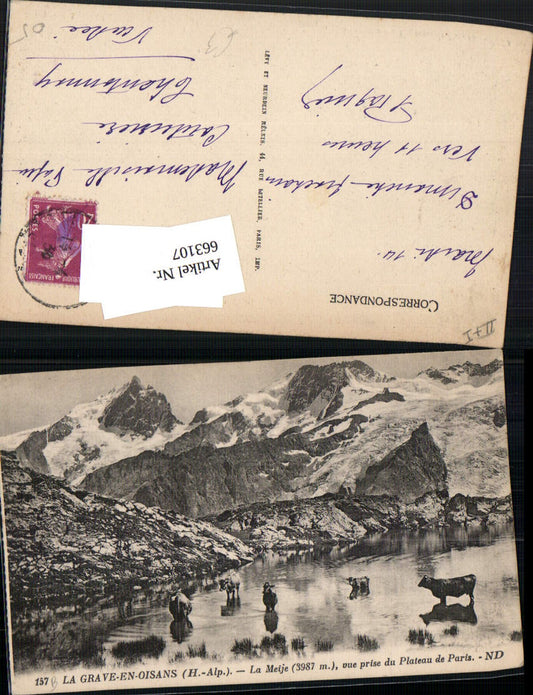 CORRESPONDANCE
Mardi 14.
Dimanche prochain
Vers 11 heures
LÉVY ET NEURDEIN RÉUNIS, 44, RUE LETELLIER, PARIS, IMP.
Mademoiselle
Couturière
Chantonnay
Vendée
Artikel Nr.
663107
POSTES
II+I
157 LA GRAVE-EN-OISANS (H.-Alp.). — La Meije (3987 m.), vue prise du Plateau de Paris. - ND